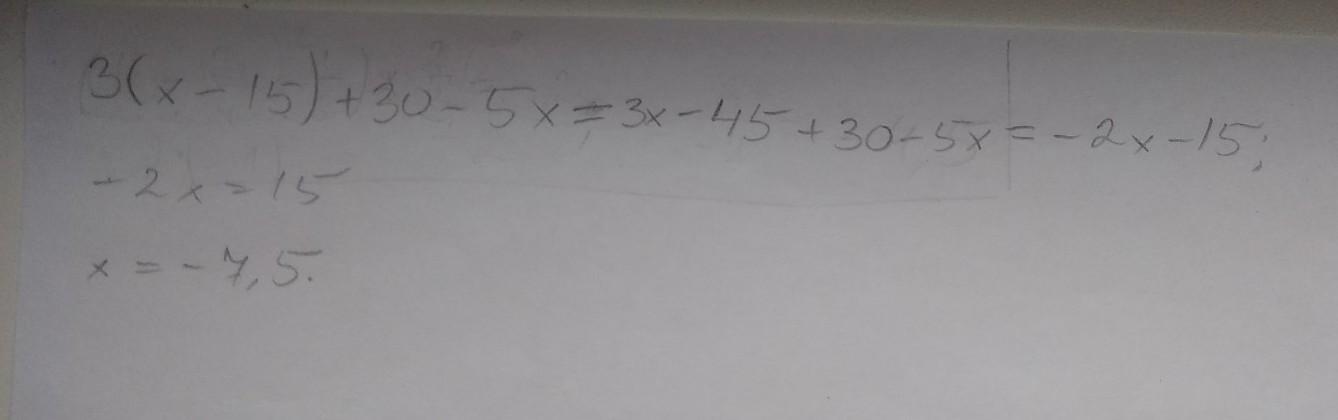 3(x-15)+30-5x=3x-45+30-5x=-2x-15;
-2x=15
x=-7,5.